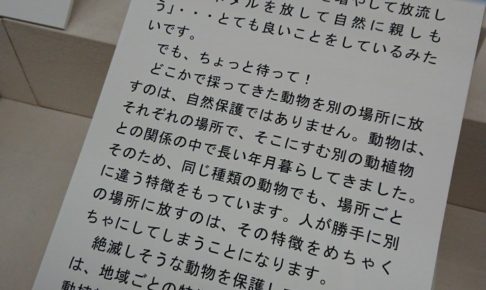 を増やして放流し
タルを放して自然に親しも
う」・・・とても良いことをしているみた
いです。
でも、ちょっと待って!
どこかで採ってきた動物を別の場所に放
すのは、自然保護ではありません。動物は、
それぞれの場所で、そこにすむ別の動植物
との関係の中で長い年月暮らしてきました。
そのため、同じ種類の動物でも、場所ごと
に違う特徴をもっています。人が勝手に別
の場所に放すのは、その特徴をめちゃく
ちゃにしてしまうことになります。
絶滅しそうな動物を保護し
は、地域ごとの特